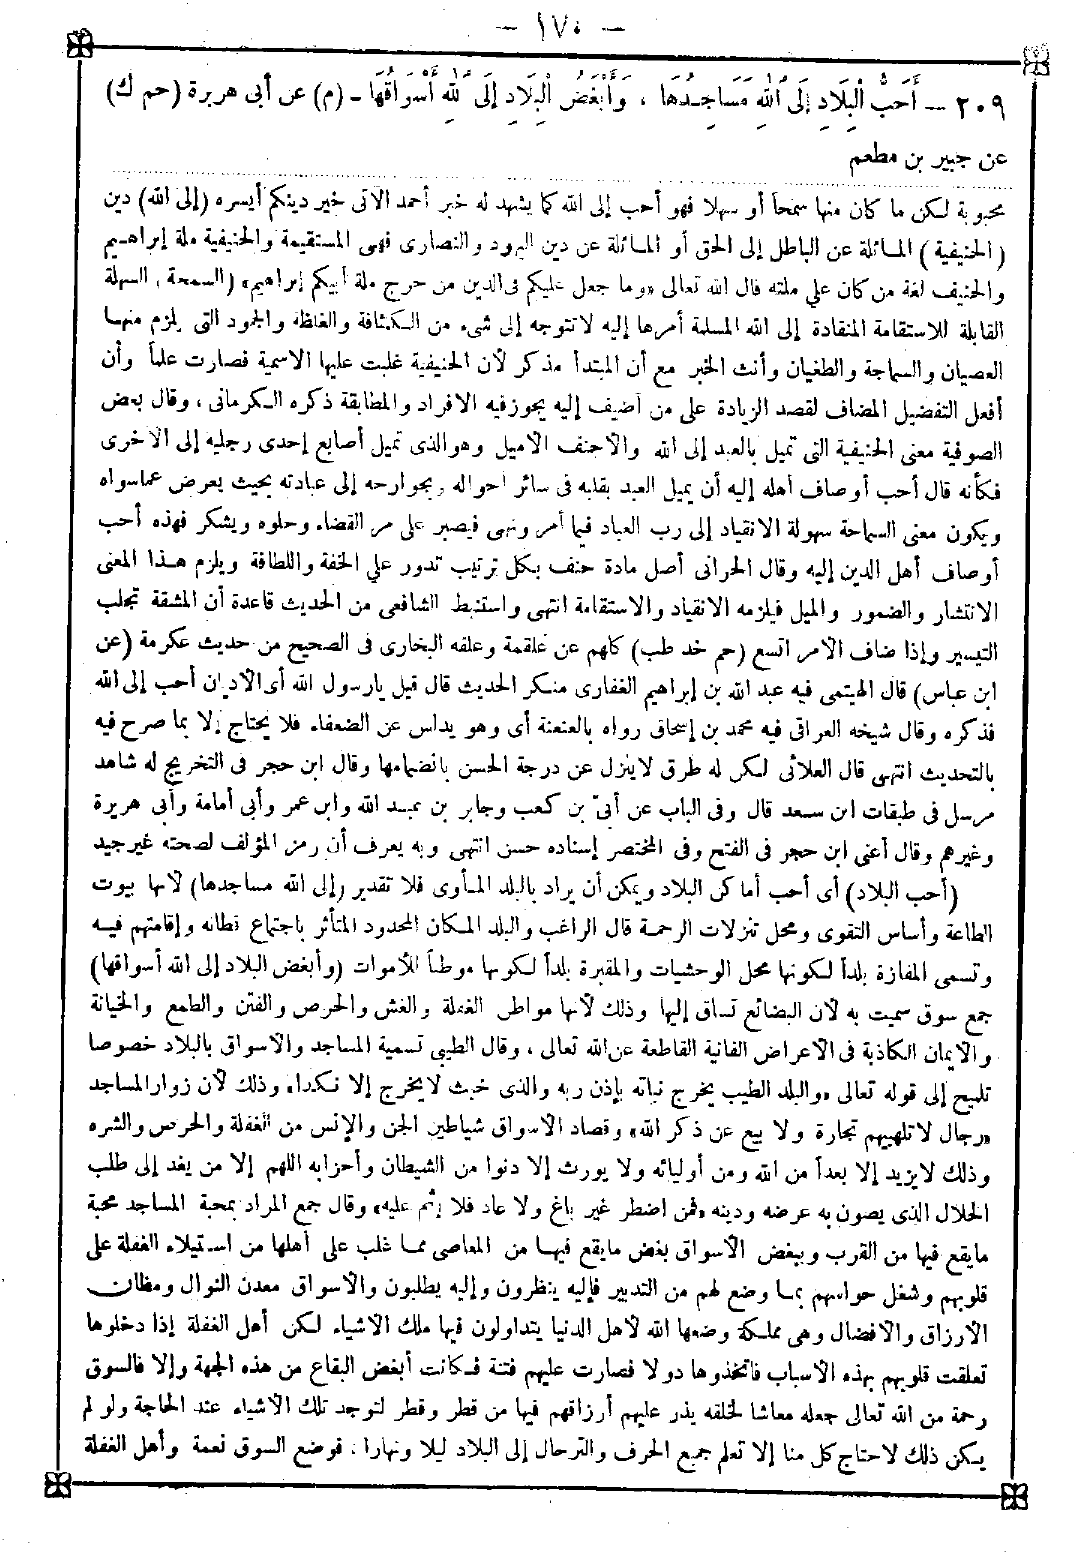 — ١٧٠ —
٢٠٩ — أَحَبُّ الْبِلَادِ إِلَى اللهِ مَسَاجِدُهَا ، وَأَبْغَضُ الْبِلَادِ إِلَى اللهِ أَسْوَاقُهَا - (م) عن أبى هريرة (حم ك)
عن جبير بن مطعم
محبوبة لكن ما كان منها سمحا أو سهلا فهو أحب إلى الله كما يشهد له خبر أحمد الآتى خير دينكم أيسره (إلى الله) دين
(الحنيفية) المائلة عن الباطل إلى الحق أو المائلة عن دين اليهود والنصارى فهى المستقيمة والحنيفية ملة إبراهيم
والحنيف لغة من كان على ملته قال الله تعالى «وما جعل عليكم فى الدين من حرج ملة أبيكم إبراهيم» (السمحة) السهلة
القابلة للاستقامة المنقادة إلى الله المسلمة أمرها إليه لا تتوجه إلى شىء من الكثافة والغلظة والجمود التى يلزم منها
العصيان والسماجة والطغيان وأنث الخبر مع أن المبتدأ مذكر لأن الحنيفية غلبت عليها الاسمية فصارت علماً وأن
أفعل التفضيل المضاف لقصد الزيادة على من أضيف إليه يجوز فيه الافراد والمطابقة ذكره الكرمانى ، وقال بعض
الصوفية معنى الحنيفية التى تميل بالعبد إلى الله والأحنف الأميل وهو الذى تميل أصابع إحدى رجليه إلى الأخرى
فكأنه قال أحب أوصاف أهله إليه أن يميل العبد بقلبه فى سائر أحواله وبجوارحه إلى عبادته بحيث يعرض عما سواه
ويكون معنى السماحة سهولة الانقياد إلى رب العباد فيما أمر ونهى فيصبر على مر القضاء وحلوه ويشكر فهذه أحب
أوصاف أهل الدين إليه وقال الحرانى أصل مادة حنف بكل ترتيب تدور على الخفة واللطافة ويلزم هذا المعنى
الانتشار والضمور والميل فيلزمه الانقياد والاستقامة انتهى واستنبط الشافعى من الحديث قاعدة أن المشقة تجلب
التيسير وإذا ضاق الأمر اتسع (حم خد طب) كلهم عن علقمة وعلقه البخارى فى الصحيح من حديث عكرمة (عن
ابن عباس) قال الهيتمى فيه عبد الله بن إبراهيم الغفارى منكر الحديث قال قيل يارسول الله أى الأديان أحب إلى الله
فذكره وقال شيخه العراقى فيه محمد بن إسحاق رواه بالعنعنة أى وهو يدلس عن الضعفاء فلا يحتاج إلا بما صرح فيه
بالتحديث انتهى قال العلائى لكن له طرق لا ينزل عن درجة الحسن بانضمامها وقال ابن حجر فى التخريج له شاهد
مرسل فى طبقات ابن سعد قال وفى الباب عن أبىّ بن كعب وجابر بن عبد الله وابن عمر وأبى أمامة وأبى هريرة
وغيرهم وقال أعنى ابن حجر فى الفتح وفى المختصر إسناده حسن انتهى وبه يعرف أن رمز المؤلف لصحته غير جيد
(أحب البلاد) أى أحب أماكن البلاد ويمكن أن يراد بالبلد المأوى فلا تقدير (إلى الله مساجدها) لأنها بيوت
الطاعة وأساس التقوى ومحل تنزلات الرحمة قال الراغب والبلد المكان المحدود المتأثر باجتماع قطانه وإقامتهم فيه
وتسمى المفازة بلداً لكونها محل الوحشيات والمقبرة بلداً لكونها موطناً للأموات (وأبغض البلاد إلى الله أسواقها)
جمع سوق سميت به لأن البضائع تساق إليها وذلك لأنها مواطن الغفلة والغش والحرص والفتن والطمع والخيانة
والايمان الكاذبة فى الأعراض الفانية القاطعة عن الله تعالى ، وقال الطيبى تسمية المساجد والأسواق بالبلاد خصوصا
تلميح إلى قوله تعالى «والبلد الطيب يخرج نباته بإذن ربه والذى خبث لا يخرج إلا نكدا» وذلك لأن زوار المساجد
«رجال لا تلهيهم تجارة ولا بيع عن ذكر الله» وقصاد الأسواق شياطين الجن والإنس من الغفلة والحرص والشره
وذلك لا يزيد إلا بعداً من الله ومن أوليائه ولا يورث إلا دنوا من الشيطان وأحزابه اللهم إلا من يغد إلى طلب
الحلال الذى يصون به عرضه ودينه «فمن اضطر غير باغ ولا عاد فلا إثم عليه» وقال جمع المراد بمحبة المساجد محبة
ما يقع فيها من القرب وببغض الأسواق بغض ما يقع فيها من المعاصى مما غلب على أهلها من استيلاء الغفلة على
قلوبهم وشغل حواسهم بما وضع لهم من التدبير فإليه ينظرون وإليه يطلبون والأسواق معدن النوال ومظان
الأرزاق والافضال وهى مملكة وضعها الله لأهل الدنيا يتداولون فيها ملك الأشياء لكن أهل الغفلة إذا دخلوها
تعلقت قلوبهم بهذه الأسباب فاتخذوها دولا فصارت عليهم فتنة فكانت أبغض البقاع من هذه الجهة وإلا فالسوق
رحمة من الله تعالى جعله معاشا لخلقه يذر عليهم أرزاقهم فيها من قطر وقطر لتوجد تلك الأشياء عند الحاجة ولو لم
يكن ذلك لاحتاج كل منا إلا تعلم جميع الحرف والترحال إلى البلاد ليلا ونهارا ، فوضع السوق نعمة وأهل الغفلة